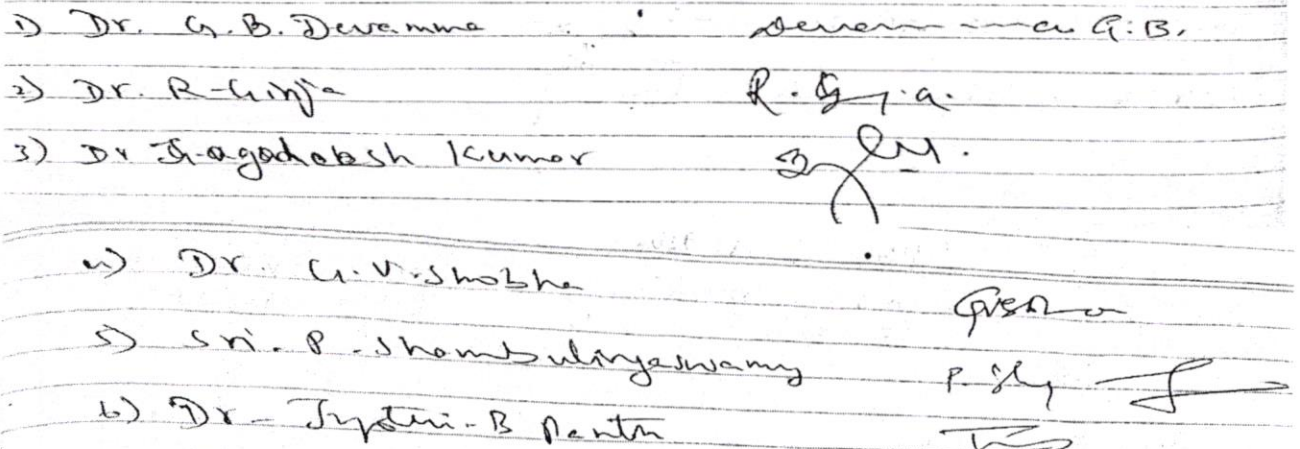 1) Dr. G. B. Devamma : Devamma G.B.
2) Dr. R-Girija R. G.j.a.
3) Dr Kumar
4) Dr. G.V. Shobha GVShobha
5) Sri. P. Shambulingaswamy P.
6) Dr- Jyothi-B